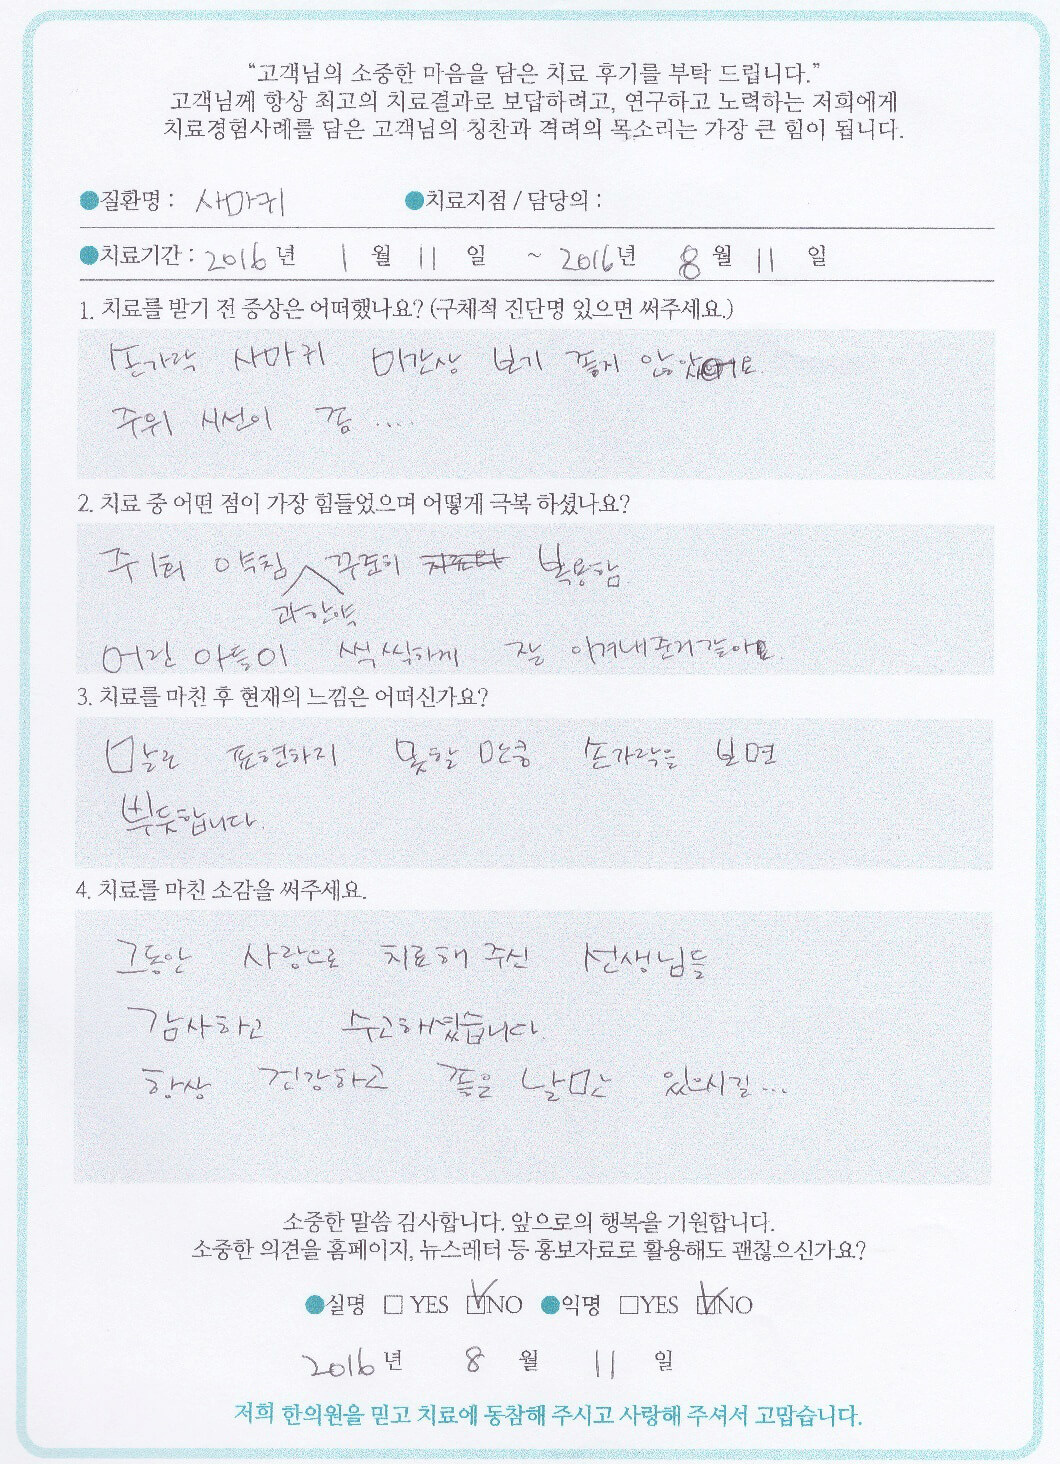 “고객님의 소중한 마음을 담은 치료 후기를 부탁 드립니다.”
고객님께 항상 최고의 치료결과로 보답하려고, 연구하고 노력하는 저희에게
치료경험사례를 담은 고객님의 칭찬과 격려의 목소리는 가장 큰 힘이 됩니다.
●질환명 : 사마귀 ●치료지점 / 담당의 :
●치료기간 : 2016 년 1 월 11 일 ~ 2016 년 8 월 11 일
1. 치료를 받기 전 증상은 어떠했나요? (구체적 진단명 있으면 써주세요.)
손가락 사마귀 미간상 보기 좋지 않았어요.
주위 시선이 좀 ....
2. 치료 중 어떤 점이 가장 힘들었으며 어떻게 극복 하셨나요?
주 1회 약침 꾸준히 복용함
과 한약
어린 아들이 씩씩하게 잘 이겨내준거 같아요.
3. 치료를 마친 후 현재의 느낌은 어떠신가요?
말로 표현하지 못할 만큼 손가락을 보면
뿌듯합니다.
4. 치료를 마친 소감을 써주세요.
그동안 사랑으로 치료해 주신 선생님들
감사하고 수고하셨습니다.
항상 건강하고 좋은 날만 있으시길...
소중한 말씀 감사합니다. 앞으로의 행복을 기원합니다.
소중한 의견을 홈페이지, 뉴스레터 등 홍보자료로 활용해도 괜찮으신가요?
●실명 □ YES ☑NO ●익명 □YES ☑NO
2016 년 8 월 11 일
저희 한의원을 믿고 치료에 동참해 주시고 사랑해 주셔서 고맙습니다.